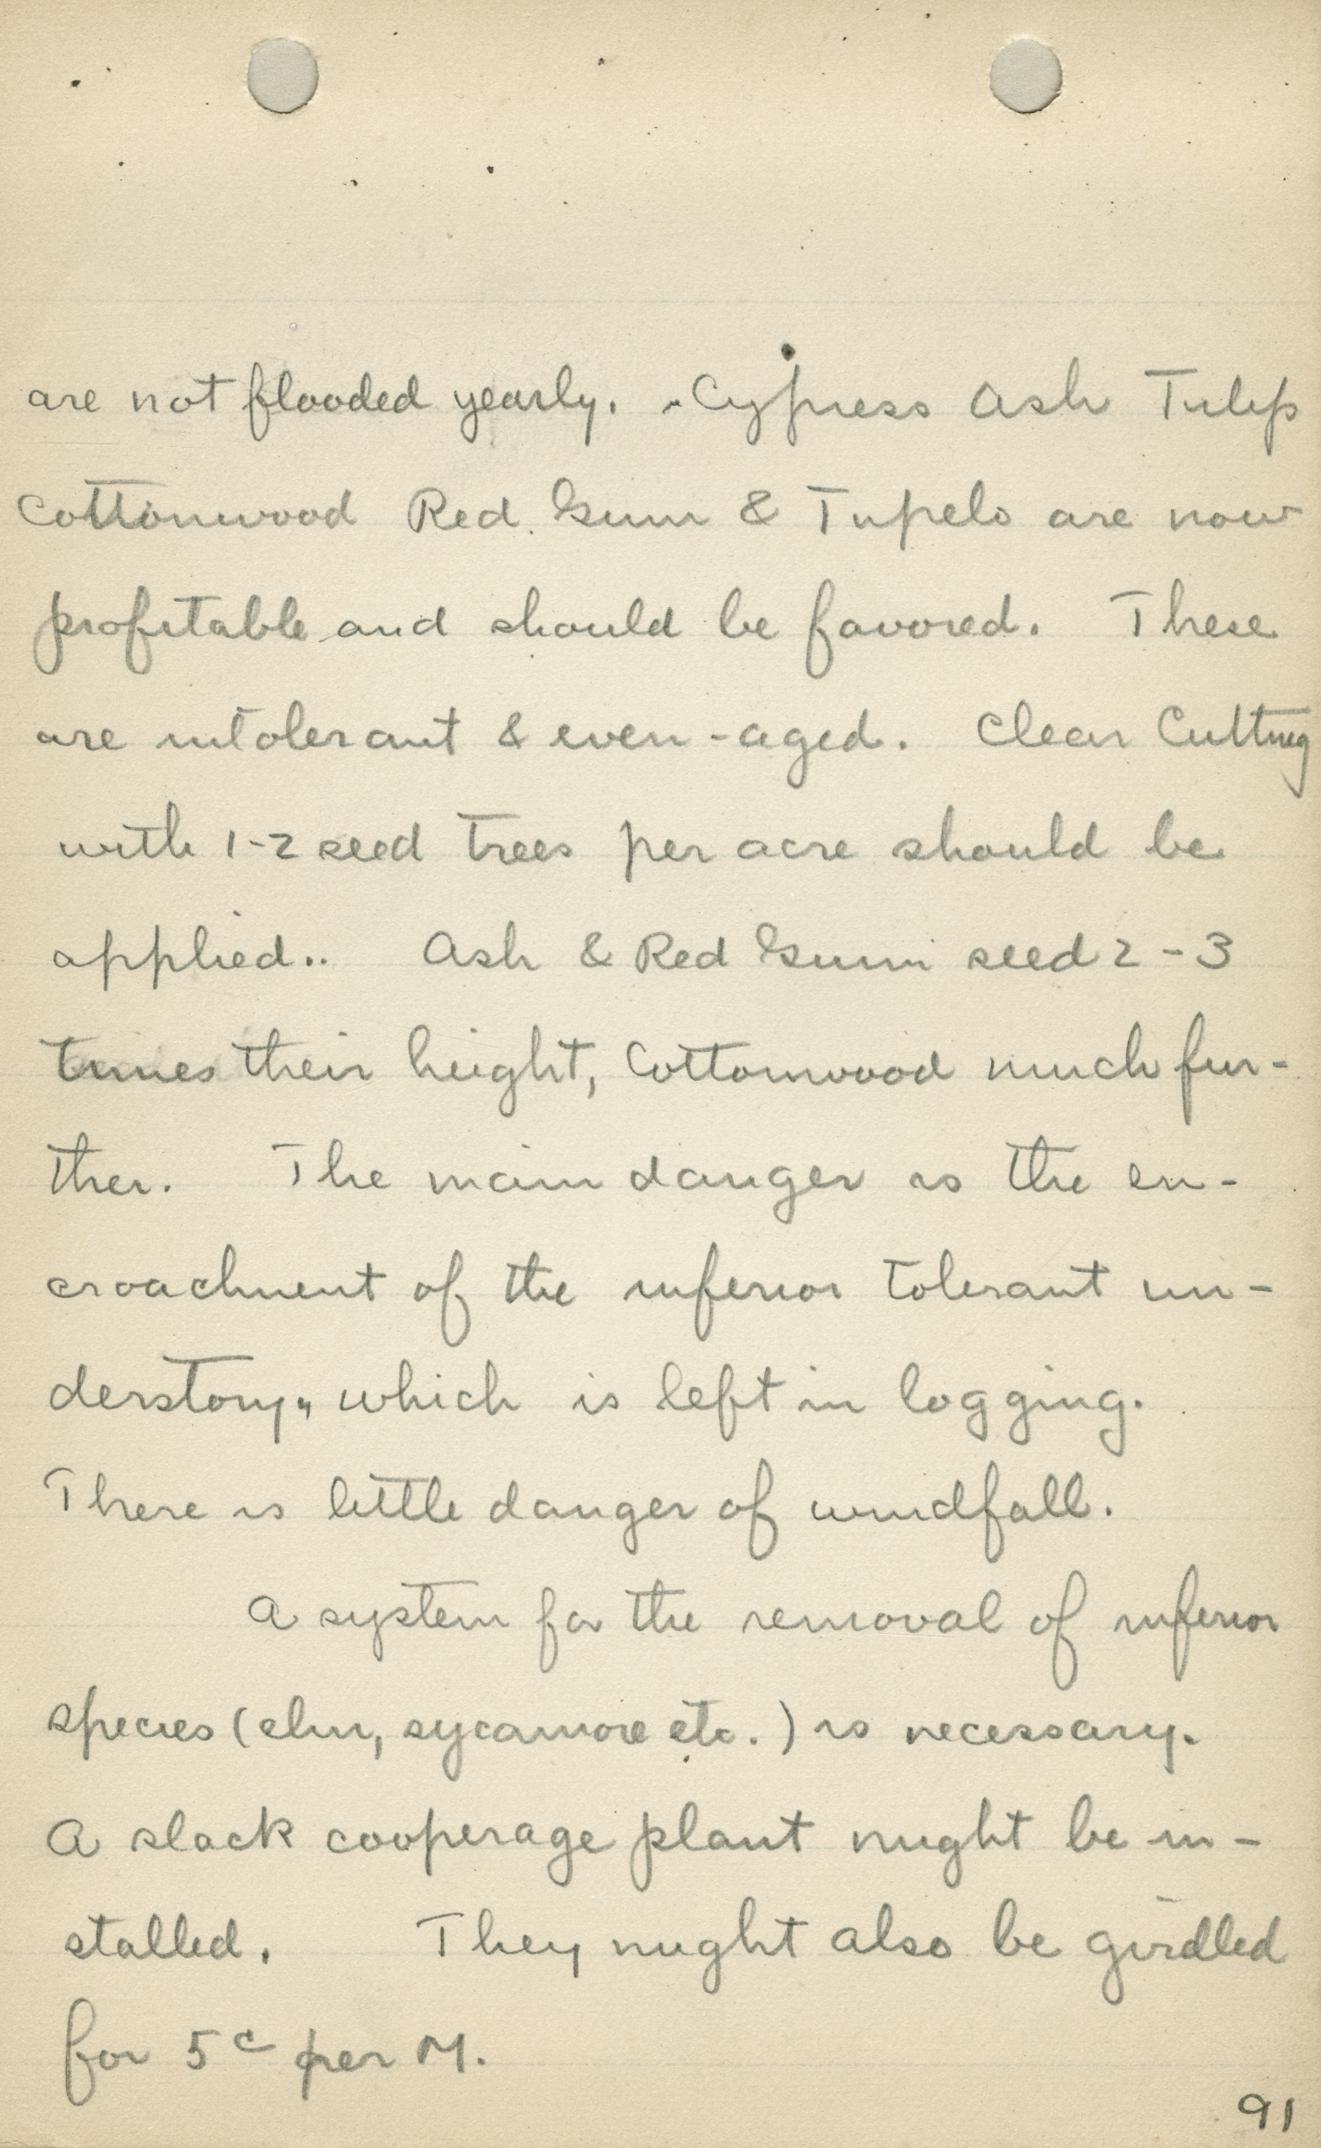 are not flooded yearly. Cypress Ash Tulip
Cottonwood Red Gum & Tupelo are now
profitable and should be favored. These
are intolerant & even-aged. Clear Cutting
with 1-2 seed trees per acre should be
applied.. Ash & Red Gum seed 2-3
times their height, Cottonwood much fur-
ther. The main danger is the en-
croachment of the inferior tolerant un-
derstory, which is left in logging.
There is little danger of windfall.
A system for the removal of inferior
species (elm, sycamore etc.) is necessary.
A slack cooperage plant might be in-
stalled. They might also be girdled
for 5c per M.
91